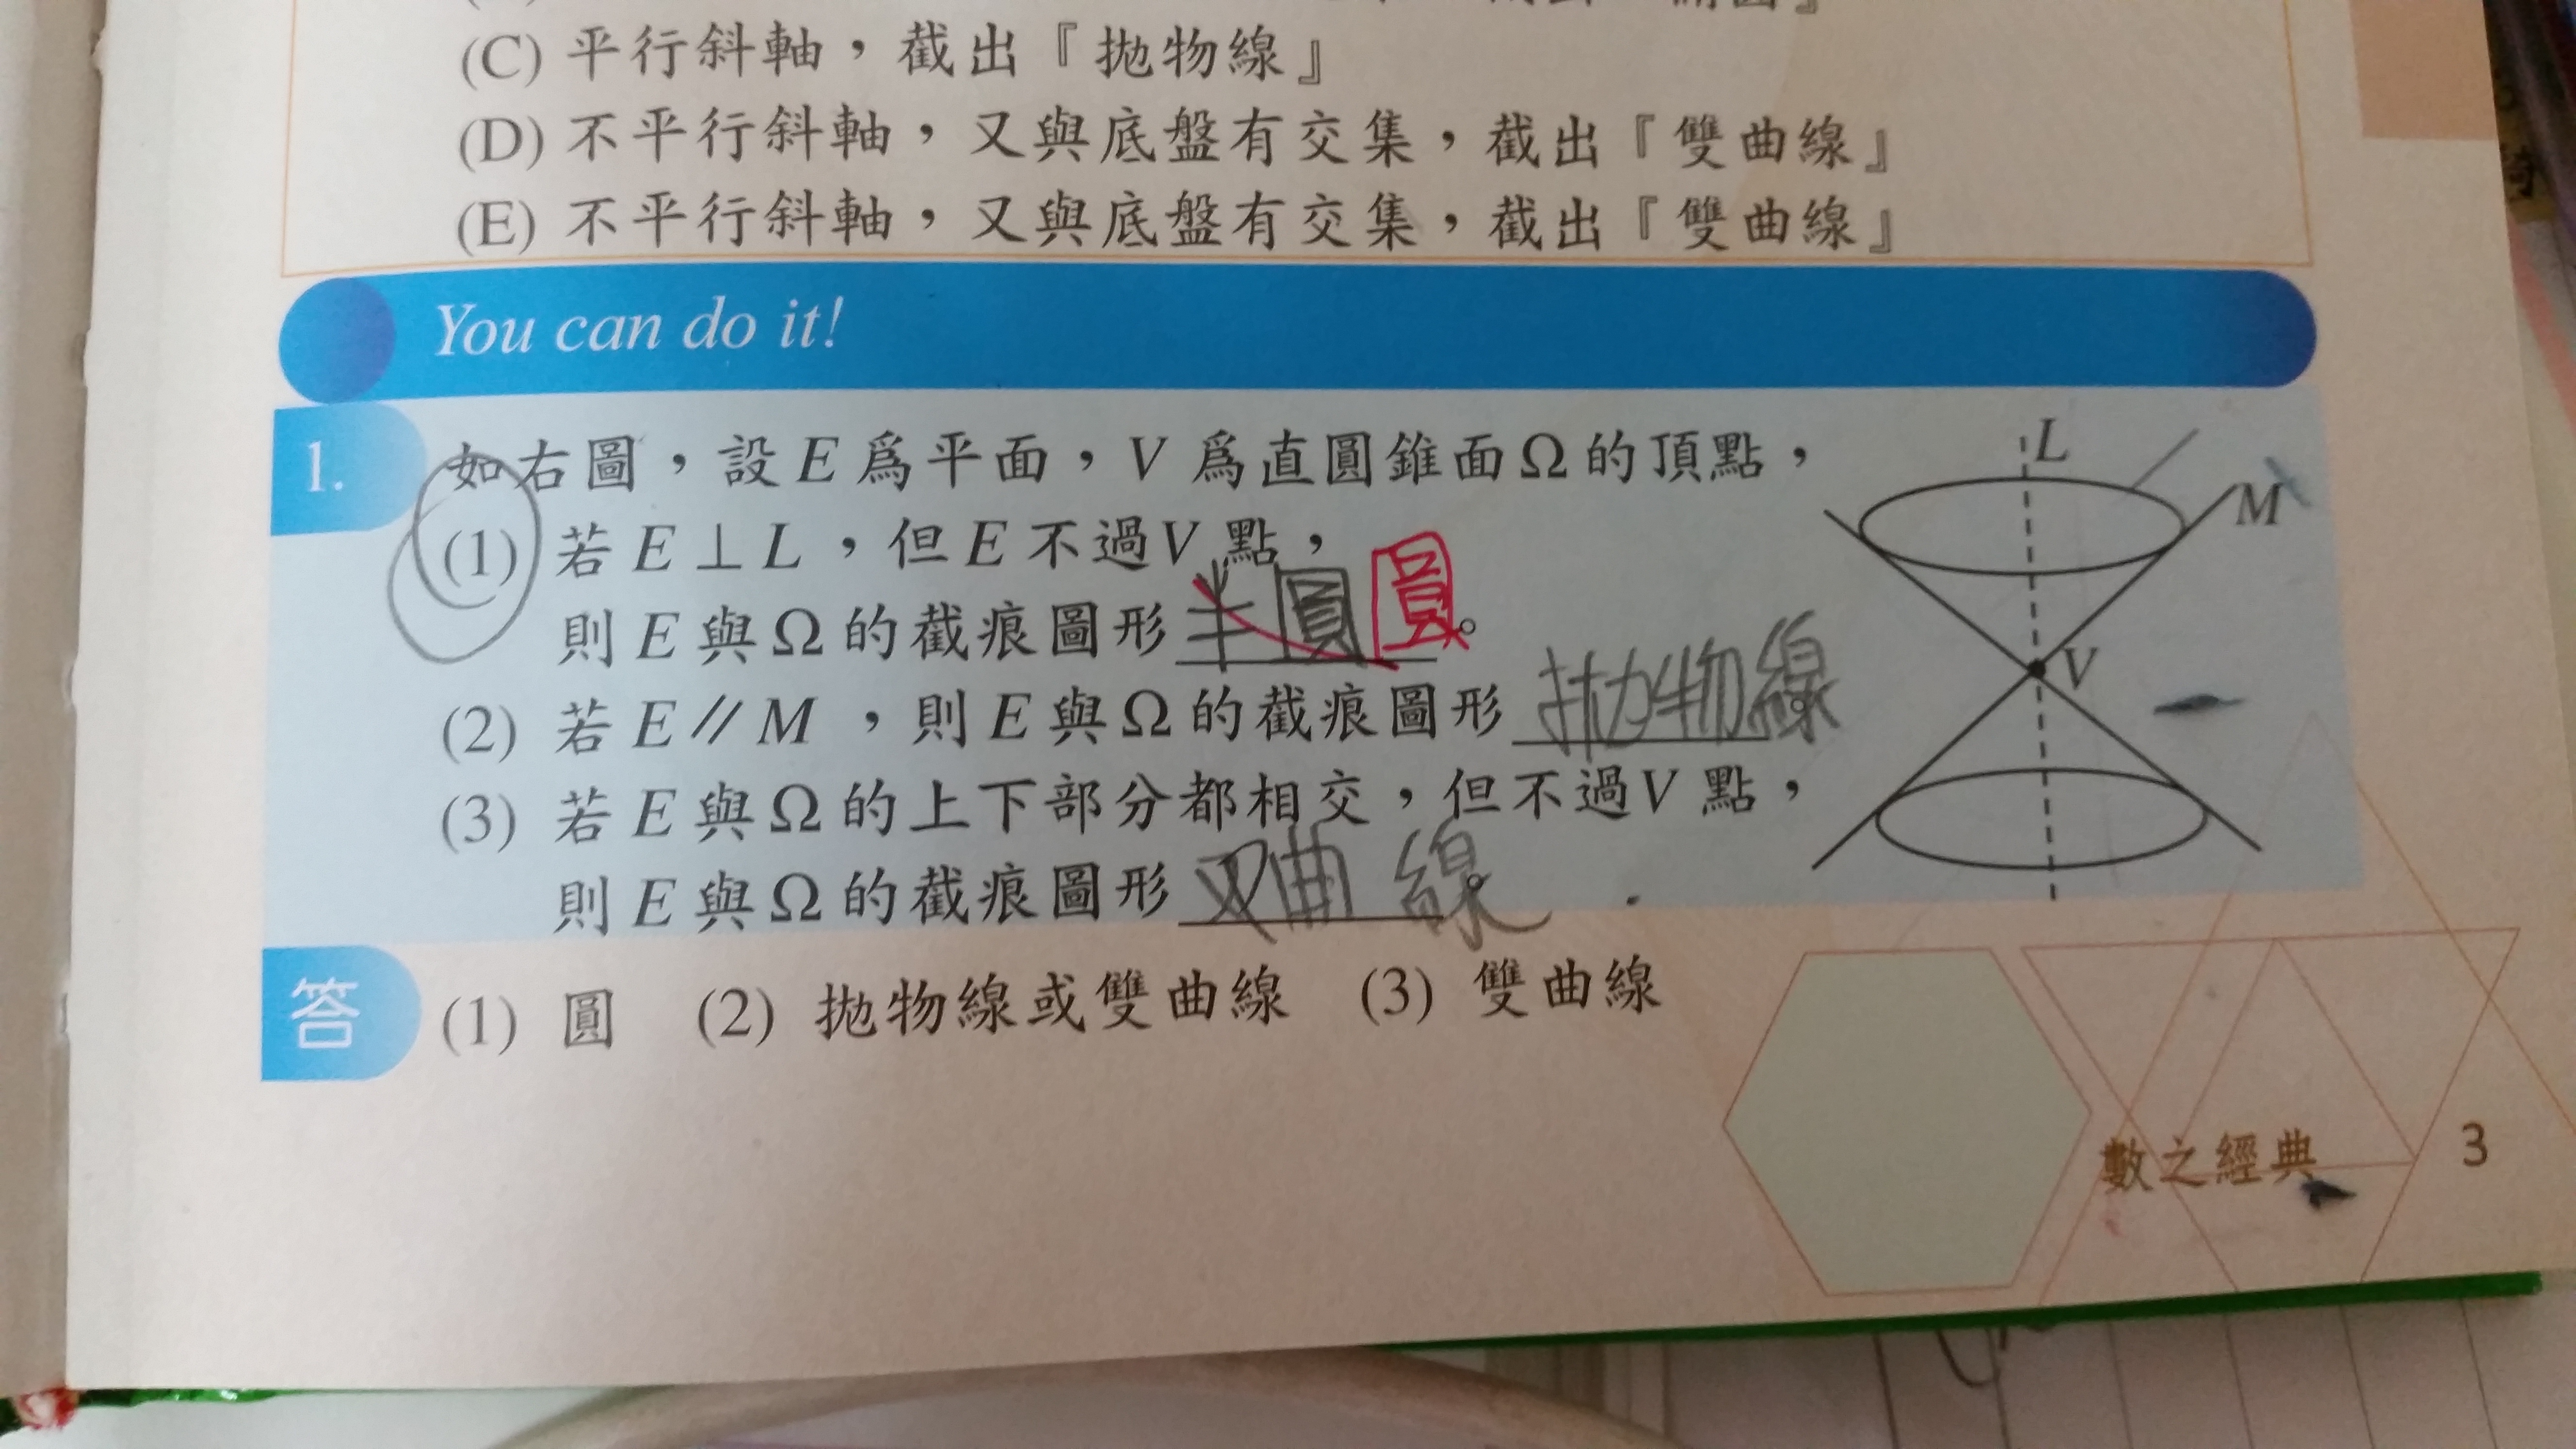 (C) 平行斜軸，截出『拋物線』
(D) 不平行斜軸，又與底盤有交集，截出『雙曲線』
(E) 不平行斜軸，又與底盤有交集，截出『雙曲線』
You can do it!
1. 如右圖，設E爲平面，V爲直圓錐面Ω的頂點，
(1) 若E⊥L，但E不過V點，
則E與Ω的截痕圖形半圓 圓。
(2) 若E∥M，則E與Ω的截痕圖形拋物線。
(3) 若E與Ω的上下部分都相交，但不過V點，
則E與Ω的截痕圖形双曲線。
L
M
V
答 (1) 圓 (2) 拋物線或雙曲線 (3) 雙曲線
數之經典 3